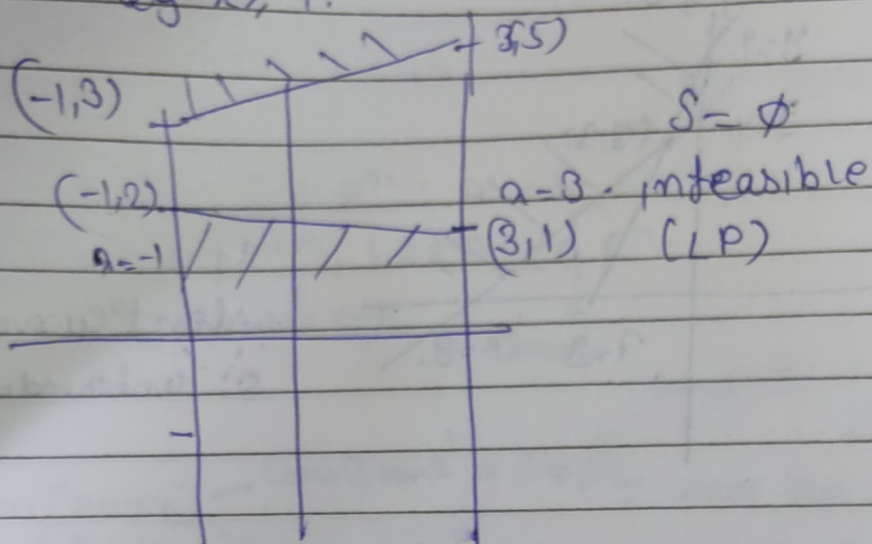 3,5)
(-1,3)
S = ϕ
(-1,2)
a=3. infeasible
a=-1
(3,1) (LP)